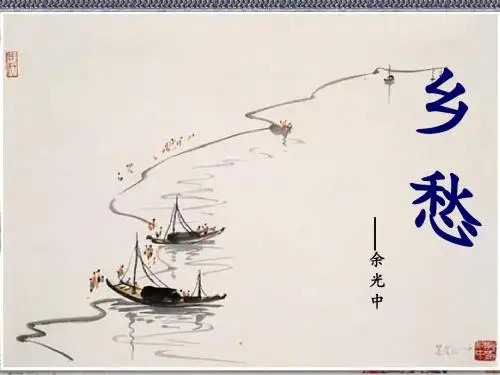 乡愁
——余光中